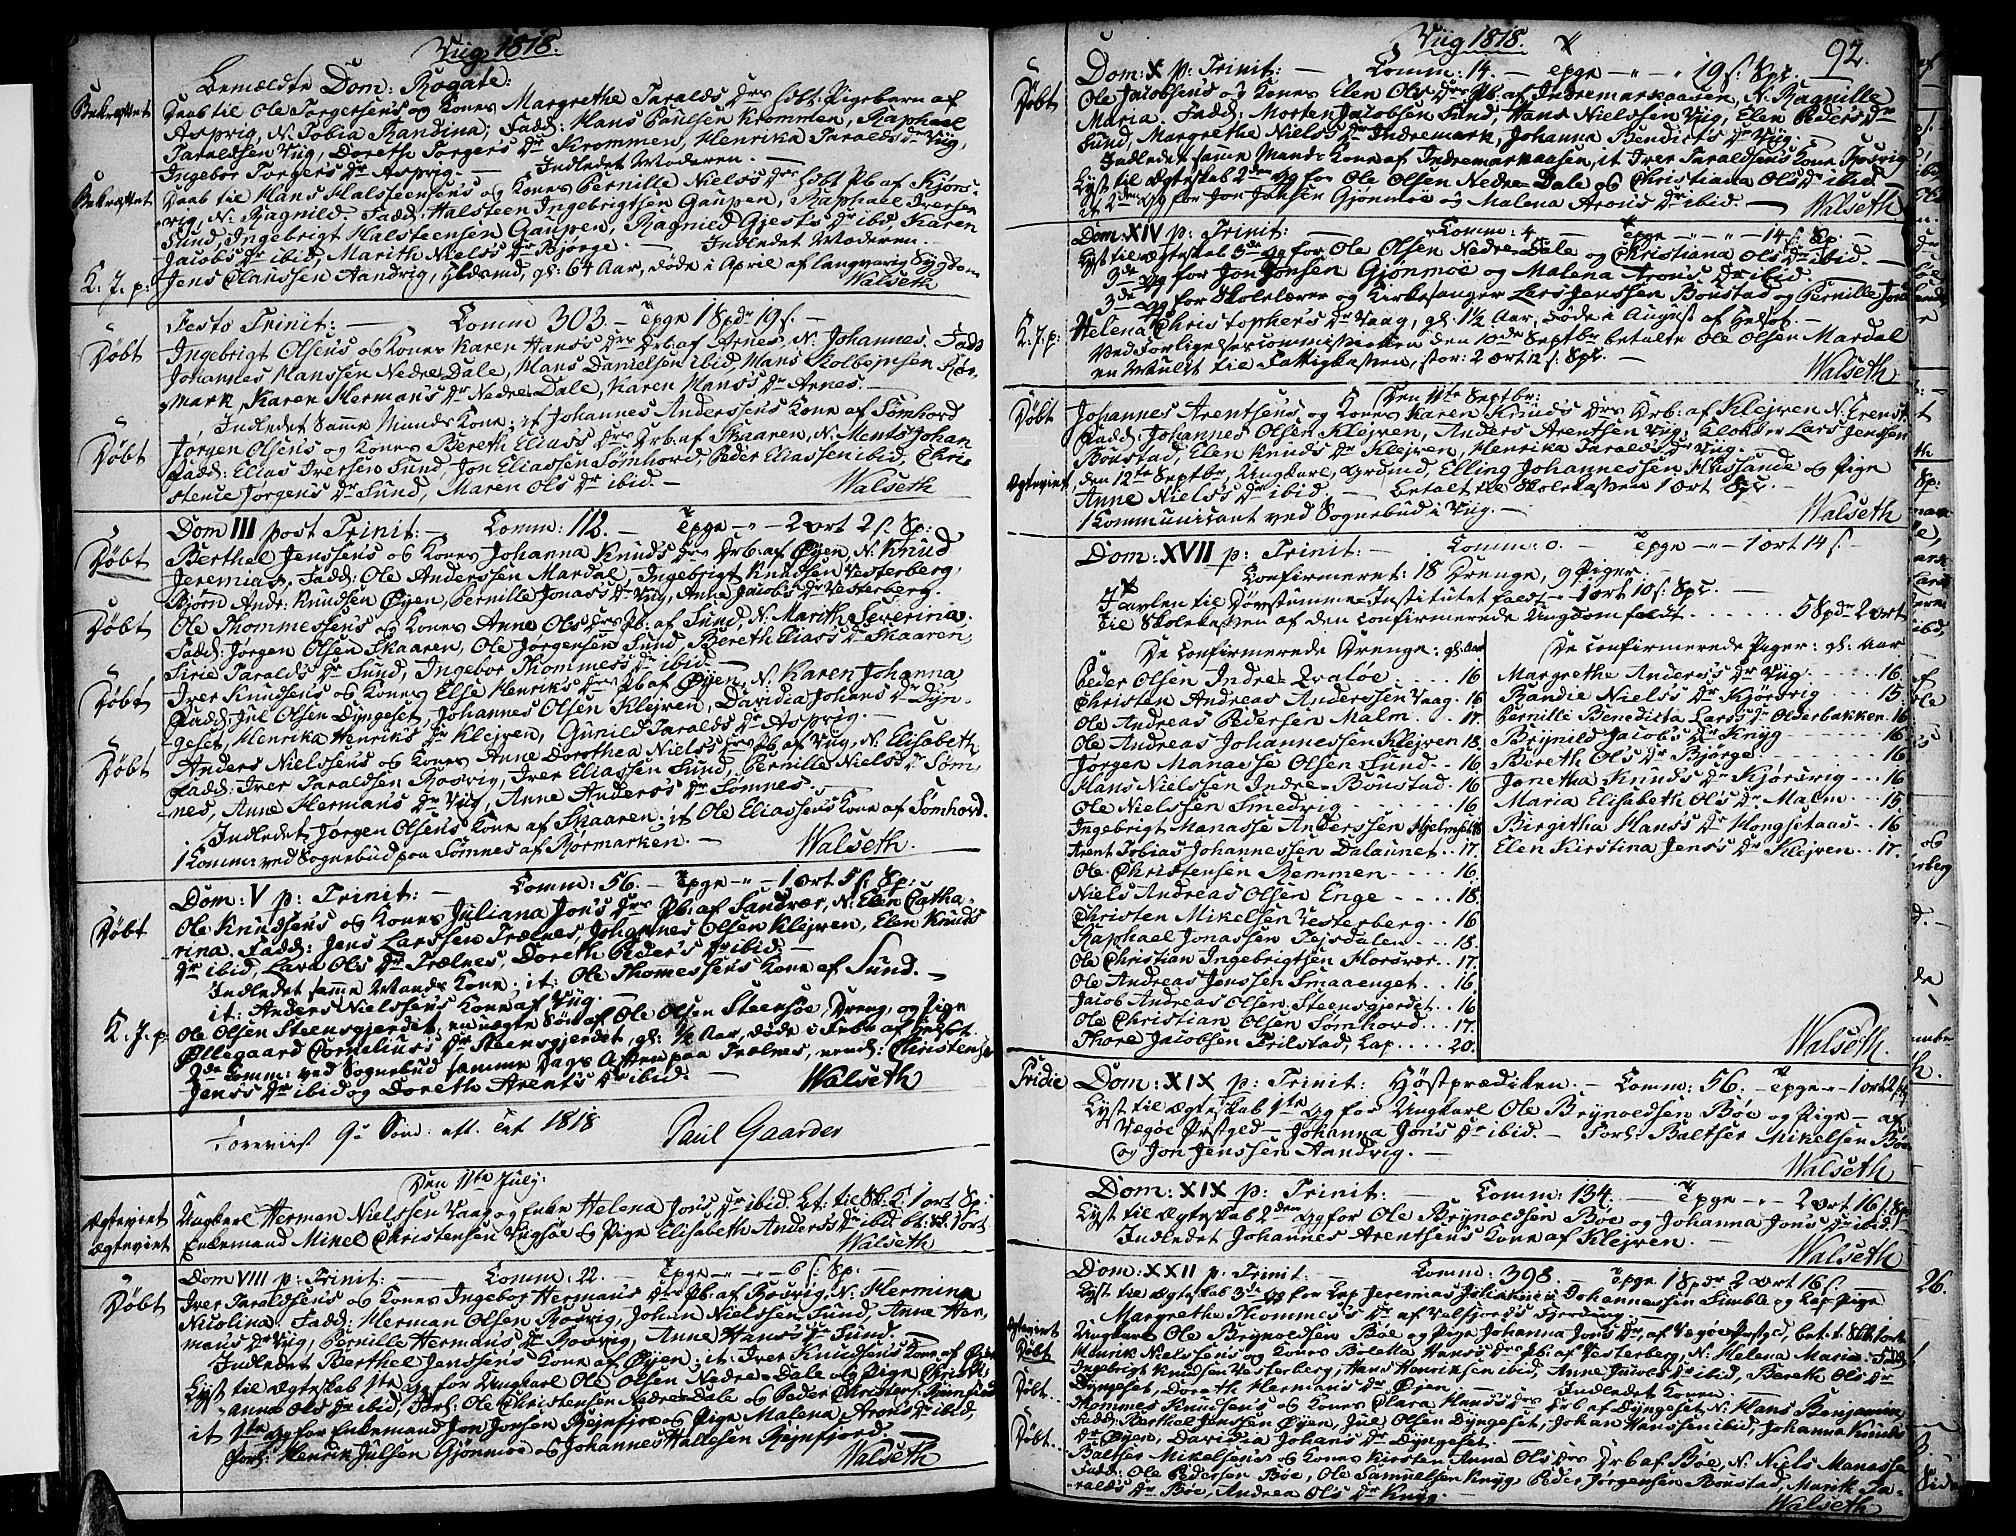 Viig 1818.
Bemældte Dom: Rogate:
Bekræftet
Daab til Ole Torgersens og Kones Margrethe Taralds Drs hbt: Pigebarn af
Asprig, N. Tobia Bandina; Fadd: Hans Poulsen Krommen, Raphael
Taraldsen Viig, Doreth Torgers Dr Krommen, Henrika Taralds Dr Viig,
Ingebor Torgers Dr Asprig. — Indledet Moderen. —
Bekræftet
Daab til Hans Halsteensens og Kones Pernille Niels's Drs hbt Pb. af Kjørs-
vig, N. Ragnild. Fadd: Halsteen Ingebrigtsen Gaupen, Raphael Iversen
Sund, Ingebrigt Halsteensen Gaupen, Ragnild Gjests Dr ibid, Karen
Jacobs Dr ibid, Marith Niels's Dr Bjørge. — Indledet Moderen. —
K. J. p:
Jens Claussen Aandvig, Huusmd, gl: 64 Aar, døde i April af langvarig Sygdom
Walseth
Festo Trinit: — Comm 303. — Tpge 1 Spdr 19 s. —
Døbt
Ingebrigt Olsens og Kones Karen Hans's Drs Drb. af Arnes, N. Johannes. Fadd
Johannes Hanssen Nedre-Dale, Hans Danielsen ibid, Hans Kolbejnsen Rør-
mark, Karen Hermans Dr Nedre-Dale, Karen Hans's Dr Arnes. —
Indledet Samme Mands Kone; it Johannes Anderssens Kone af Sømhord
Døbt
Jørgen Olsens og Kones Bereth Elias's Drs Drb. af Skaaren, N. Ments Johan
Fadd: Elias Iversen Sund, Jon Eliassen Sømhord, Peder Eliassen ibid, Chri-
stence Jørgens Dr Sund, Maren Ols Dr ibid. —
Walseth
Dom III post Trinit: — Comm: 112. — Tpge —"— 2 ort 2 s. Sp:
Døbt
Berthel Jenssens og Kones Johanna Knuds Drs Drb. af Øyen, N. Knud
Jeremias, Fadd: Ole Anderssen Mardal, Ingebrigt Knudsen Vesterberg,
Bjørn Andr: Knudsen Øyen, Pernille Jonas's Dr Viig, Anne Jacobs Dr Vesterberg.
Døbt
Ole Thommessens og Kones Anne Ols Drs Pb. af Sund, N. Marith Severina.
Fadd: Jørgen Olsen Skaaren, Ole Jørgensen Sund, Bereth Elias's Dr Skaaren,
Sirie Taralds Dr Sund, Ingebor Thommes's Dr ibid. —
Døbt
Iver Knudsens og Kones Else Henriks Drs Pb af Øyen, N. Karen Johanna
Fadd: Jul Olsen Dyngeset, Johannes Olsen Klejven, Davidia Johans Dr Dyn-
geset, Henrika Henriks Dr Klejven, Gunild Taralds Dr Asprig. —
Døbt
Anders Nielssens og Kones Anne Dorothea Niels's Drs Pb. af Viig, N. Elisabeth
Fadd: Iver Taraldsen Rosvig, Iver Eliassen Sund, Pernille Niels's Dr Søm-
nes, Anne Hermans Dr Viig, Anne Anders's Dr Sømnes. —
Indledet Jørgen Olsens Kone af Skaaren; it Ole Eliassens Kone af Sømhord.
1 Komm: ved Sognebud paa Sømnes af Rørmarken. —
Walseth.
Dom: V p: Trinit: — Comm: 56. — Tpge —"— 1 Ort 5 s. Sp:
Døbt
Ole Knudsens og Kones Juliana Jons Drs Pb: af Sandvær, N: Elen Catha-
rina. Fadd: Jens Larssen Trælnes, Johannes Olsen Klejven, Elen Knuds
Dr ibid, Lava Ols Dr Trælnes, Doreth Peders Dr ibid. —
Indledet samme Mands Kone; it: Ole Thomessens Kone af Sund. —
it: Anders Nielssens Kone af Viig. —
K. J. p:
Ole Olsen Steensgjerdet, en uægte Søn af Ole Olsen Steensøe, Dreng, og Pige
Øllegaard Cornelius's Dr Steensgjerdet, gl: ½ Aar, døde i Febr. af Helsot.
2de Comm: ved Sognebud samme Dags Aften paa Trælnes, nemlig: Christense
Jens's Dr ibid og Doreth Arents Dr ibid. —
Walseth
Foreviist 9de Sønd: eft. Tret 1818 Paul Gaarder
Den 11te July:
Ægteviet
Ungkarl Herman Nielssen Vaag og Enke Helena Jons Dr ibid. bt: til Sk: C: 1 ort Sp:
Ægteviet
Enkemand Mikel Christensen Vugsøe og Pige Elisabeth Anders's Dr ibid. bt: Sk. 1 ort
Walseth
Dom VIII p: Trinit: — Comm: 22. — Tpge —"—"— 6 s. Sp: —
Døbt
Iver Taraldsens og Kones Ingebor Hermans Drs Pb. af Rosvig, N. Hermina
Nicolina. Fadd: Herman Olsen Rosvig, Johan Nielssen Sund, Anne Her-
mans Dr Viig, Pernille Hermans Dr Rosvig, Anne Hans's Dr Sund. —
Indledet Berthel Jenssens Kone af Øyen; it: Iver Knudsens Kone af Øyen
Lyst til Ægteskab 1te Gg for Ungkarl Ole Olsen Nedre-Dale og Pige Christi-
anna Ols Dr ibid, Forl: Ole Christensen Nedre-Dale og Peder Christens.
it 1te Gg for Enkemand Jon Jonsen Rejnfjor og Pige Malena Arons Dr ibid,
Forl: Henrik Julsen Gjønmoe og Johannes Hallesen Rejnfjord. —
Walseth
Viig 1818.
92.
Dom: X p: Trinit: — Comm: 14. — Tpge —"—"— 19 s. Sp:
Døbt
Ole Jacobsens og Kones Elen Ols Drs Pb. af Indremarkaasen, N. Ragnille
Maria. Fadd: Morten Jacobsen Sund, Hans Nielssen Viig, Elen Peders Dr
Sund, Margrethe Niels's Dr Indremark, Johanna Bendicts Dr Viig. —
Indledet samme Mands Kone af Indremarkaasen, it Iver Taraldsens Kone Rosvig
Lyst til Ægteskab 2den Gg for Ole Olsen Nedre-Dale og Christiana Ols Dr ibid.
it 2den Gg for Jon Jonsen Gjønmoe og Malena Arons Dr ibid. —
Walseth
Dom: XIV p: Trinit: — Comm: 4. — Tpge —"—"— 14 s. Sp. —
Lyst til Ægteskab 3de Gg for Ole Olsen Nedre-Dale og Christiana Ols Dr ibid. —
3de Gg for Jon Jonsen Gjønmoe og Malena Arons Dr ibid
3de Gg for Skolelærer og Kirkesanger Lars Jenssen Bønstad og Pernille Jons
K. J. p:
Helena Christophers Dr Vaag, gl: 1½ Aar, døde i August af Helsot. —
Ved Forligelsescommissionen den 10de Septbr betalte Ole Olsen Mardal
en Mulct til Fattigkassen, stor: 2 ort 12 s. Sp:. —
Walseth
Den 11te Septbr:
Døbt
Johannes Arentsens og Kones Karen Knuds Drs Drb: af Klejven N. Erenst.
Fadd: Johannes Olsen Klejven, Anders Arentsen Viig, Klokker Lars Jenssen
Bønstad, Elen Knuds Dr Klejven, Henrika Taralds Dr Viig. —
Ægteviet,
den 12te Septbr, Ungkarl, Elling Johannessen Huusande og Pige
Anne Niels's Dr ibid. — Betalt til Skolekassen 1 Ort Sp:.
1 Kommunicant ved Sognebud i Viig. —
Walseth
Dom: XVII p: Trinit: — Comm: 0. Tpge —"— 1 ort 14 s. —
Confirmeret: 18 Drenge, 9 Piger. —
Tavlen til Døvstumme-Institutet faldt —"— 1 ort 10 s. Sp:. —
Til Skolekassen af den confirmerede Ungdom faldt. . . . . . . 5 Spdr 2 ort
De Confirmerede Drenge: gl: Aar
Peder Olsen Indre-Qvaløe . . . . 16
Christen Andreas Anderssen Vaag . 16
Ole Andreas Pedersen Malm . . 17.
Ole Andreas Johannessen Klejven 18.
Jørgen Manasse Olsen Sund . . 16
Hans Nielssen Indre-Bønstad . 16
Ole Nielssen Smedvig . . . . . 16
Ingebrigt Manasse Anderssen Hjelmset 18
Arent Tobias Johannessen Dalaunet . . 17.
Ole Christensen Remmen . . . . 16.
Niels Andreas Olsen Enge . . . . 18.
Christen Mikelsen Vesterberg . . 16
Raphael Jonassen Tejsdalen . . . 18.
Ole Christian Ingebrigtsen Florsvær . . 17
Ole Andreas Jenssen Smaaenget . . 16
Jacob Andreas Olsen Steensgjerdet . . 16
Ole Christian Olsen Sømhord . . . 17.
Thore Jacobsen Trilstad, Lap . . . . 20.
De Confirmerede Piger: gl: Aar
Margrethe Anders's Dr Viig . . . . . 16
Bandie Niels's Dr Kjørsvig . . . 15.
Pernille Benedicta Lars's Dr Olderbakken . 16
Brynild Jacobs Dr Knyg . . . . . 16
Bereth Ols Dr Bjørge . . . . . 16
Jonetha Knuds Dr Kjørsvig . . . 16
Maria Elisabeth Ols Dr Malm . . . 15.
Birgitha Hans's Dr Hongsetaas . . . 16
Elen Kirstina Jens's Dr Klejven . . 17.
Walseth.
Tridie
Dom: XIX p: Trinit: Høstprædiken. — Comm: 56. — Tpge —"— 1 ort
Lyst til Ægteskab 1te Gg for Ungkarl Ole Brynoldsen Bøe og Pige — af
Vægøe Prstgeld — Johanna Jons Dr ibid. — Forl: Baltser Mikelsen Bøe
og Jon Jenssen Aandvig. —
Walseth
Dom: XIX p: Trinit: — Comm: 134. — Tpge —"— 2 Ort 16 s. Sp
Lyst til Ægteskab 2den Gg for Ole Brynoldsen Bøe og Johanna Jons Dr ibid.
Indledet Johannes Arentsens Kone af Klejven. —
Walseth
Dom: XXII p: Trinit: — Comm: 398. — Tpge 1 Spdr 2 Ort 16 s. —
Lyst til Ægteskab 3de Gg for Lap Jeremias Johannessen Simble og Lap-Pige
Margrethe Thommes's Dr af Velfjords Fjerding. —
Ægteviet
Ungkarl Ole Brynoldsen Bøe og Pige Johanna Jons Dr, af Vægøe Prstgd, bet: t. Sk 1 ort
Døbt
Henrik Nielssens og Kones Boletta Hans's Drs Pb. af Vesterberg, N. Helena Maria. Fadd
Ingebrigt Knudsen Vesterberg, Hans Henriksen ibid, Anne Jacobs Dr ibid, Bereth Ols Dr
Dyngeset, Doreth Hermans Dr Øyen — Indledet Konen. —
Døbt.
Thommes Knudsens og Kones Clara Hans's Drs Drb af Dyngeset N. Hans Benjamin
Fadd: Berthel Jenssen Øyen, Jul Olsen Dyngeset, Johan Hanssen ibid, Johanna Knuds
Dr Øyen, Davidia Johans Dr Dyngeset. —
Døbt.
Baltser Mikelsens og Kones Kirsten Anna Ols Drs Drb af Bøe, N. Niels Manasse
Fadd: Ole Pedersen Bøe, Ole Samuelsen Knyg, Peder Jørgensen Bønstad, Marik Ta-
ralds Dr Bøe, Andrea Ols Dr Knyg. —
Walseth